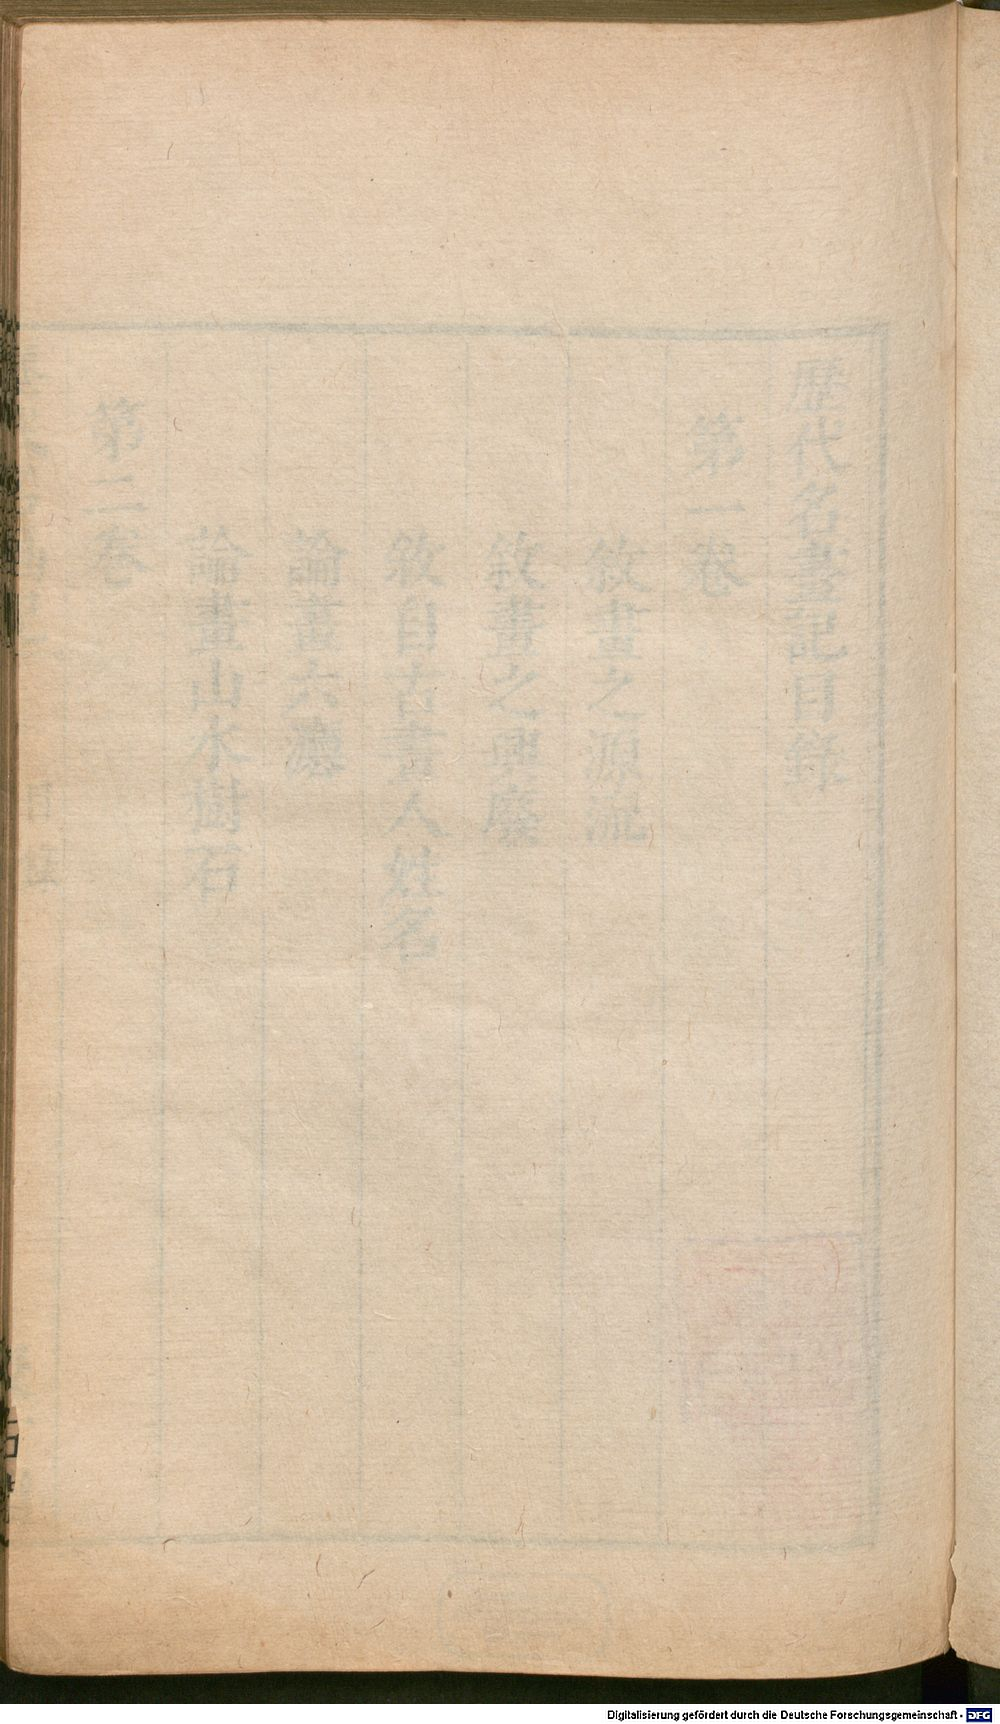 歷代名畫記目錄
第一卷
敘畫之源流
敘畫之興廢
敘自古畫人姓名
論畫六法
論畫山水樹石
第二卷
Digitalisierung gefördert durch die Deutsche Forschungsgemeinschaft - DFG